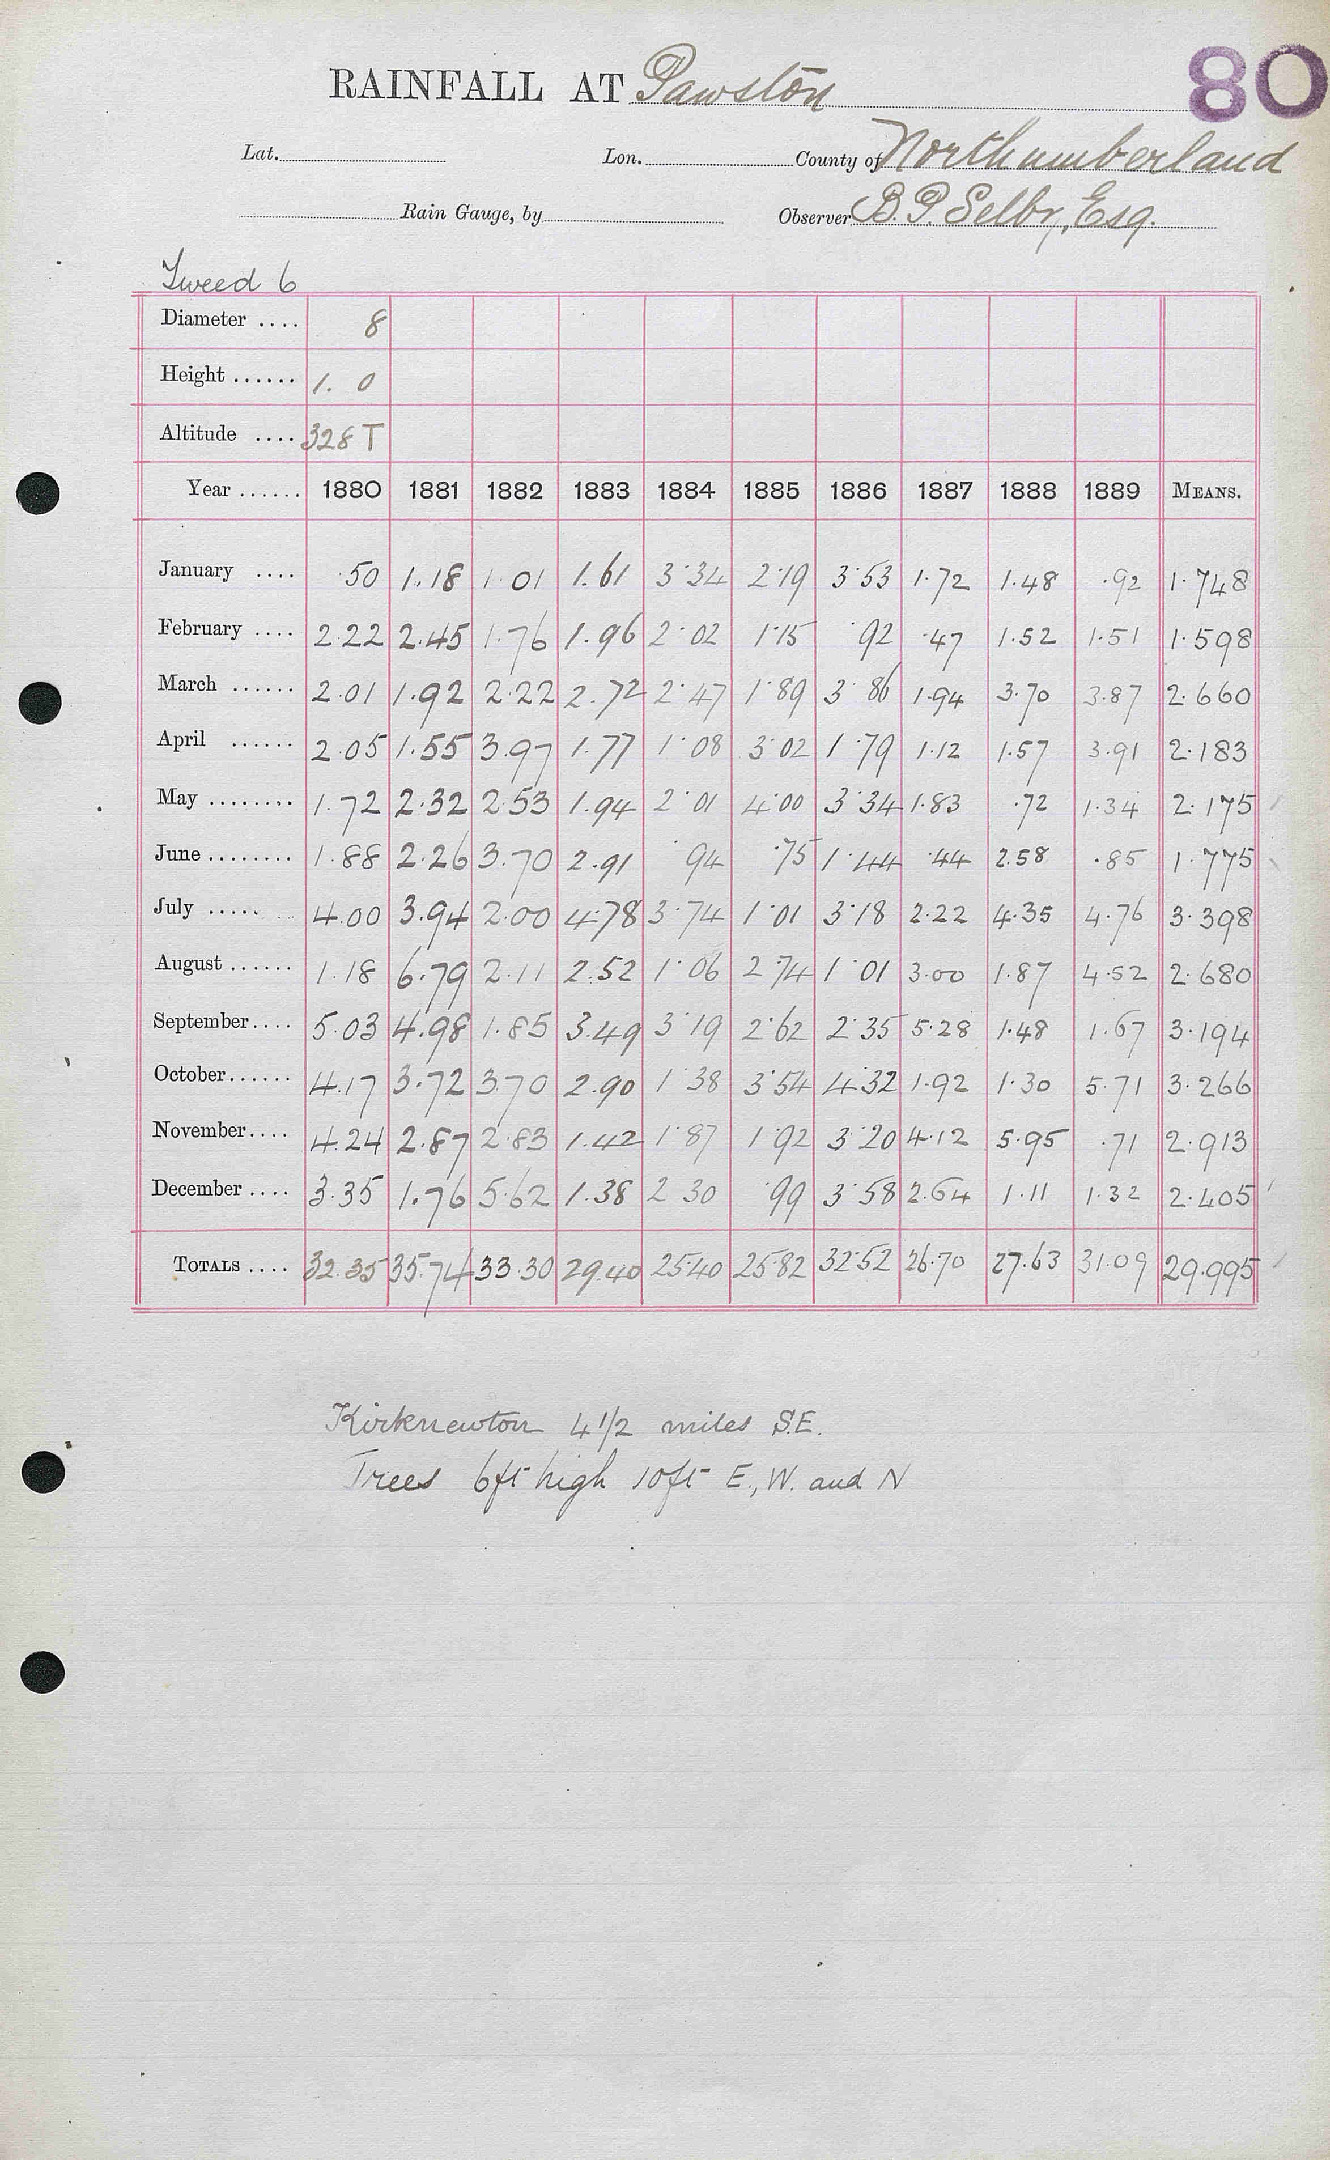 RAINFALL AT Pawston 80
Lat. Lon. County of Northumberland
Rain Gauge, by Observer B.P. Selby, Esq.
Tweed 6
Diameter .... 8
Height ...... 1. 0
Altitude .... 328 T
Year ...... 1880 1881 1882 1883 1884 1885 1886 1887 1888 1889 MEANS.
January .... .50 1.18 1.01 1.61 3.34 2.19 3.53 1.72 1.48 .92 1.748
February .... 2.22 2.45 1.76 1.96 2.02 1.15 .92 .47 1.52 1.51 1.598
March ...... 2.01 1.92 2.22 2.72 2.47 1.89 3.86 1.94 3.70 3.87 2.660
April ...... 2.05 1.55 3.97 1.77 1.08 3.02 1.79 1.12 1.57 3.91 2.183
May ........ 1.72 2.32 2.53 1.94 2.01 4.00 3.34 1.83 .72 1.34 2.175
June ........ 1.88 2.26 3.70 2.91 .94 .75 1.44 .44 2.58 .85 1.775
July ..... 4.00 3.94 2.00 4.78 3.74 1.01 3.18 2.22 4.35 4.76 3.398
August ...... 1.18 6.79 2.11 2.52 1.06 2.74 1.01 3.00 1.87 4.52 2.680
September.... 5.03 4.98 1.85 3.49 3.19 2.62 2.35 5.28 1.48 1.67 3.194
October...... 4.17 3.72 3.70 2.90 1.38 3.54 4.32 1.92 1.30 5.71 3.266
November.... 4.24 2.87 2.83 1.42 1.87 1.92 3.20 4.12 5.95 .71 2.913
December .... 3.35 1.76 5.62 1.38 2.30 .99 3.58 2.64 1.11 1.32 2.405
TOTALS .... 32.35 35.74 33.30 29.40 25.40 25.82 32.52 26.70 27.63 31.09 29.995
Kirknewton 4 1/2 miles S.E.
Trees 6ft high 10ft E., W. and N